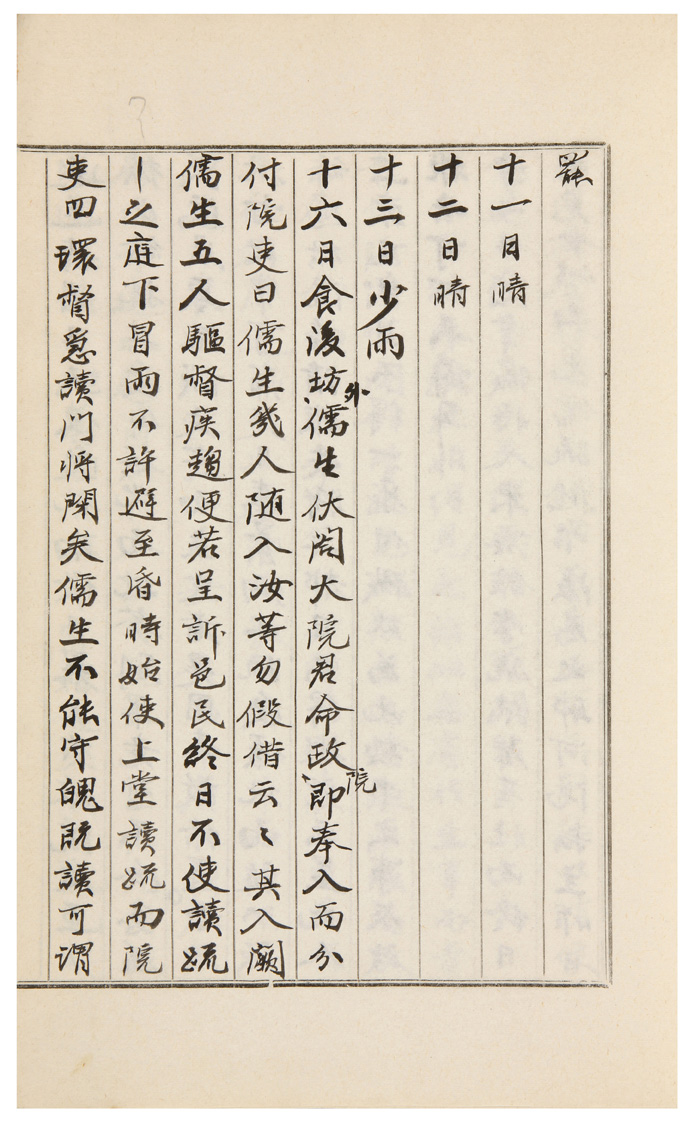 罷
十一日晴
十二日晴
十三日少雨
十六日食後坊外儒生伏閤大院君命政院即奉入而分
付院吏曰儒生幾人随入汝等勿假借云〻其入闕
儒生五人驅督疾趨便若呈訴邑民終日不使讀疏
立之庭下冒雨不許避至昏時始使上堂讀疏而院
吏四環督急讀門将閉矣儒生不能守魄既讀可謂